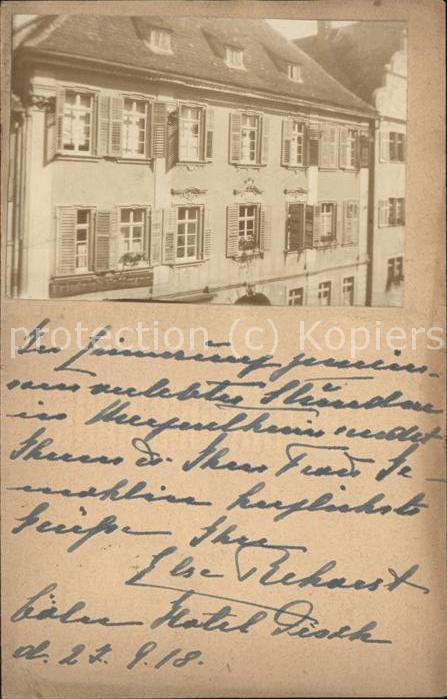 protection (c) Kopiers
In Erinnerung gemein-
sam verlebter Stunden
in Mergentheim sendet
Ihnen u. Ihrer Frau Ge-
mahlin herzlichste
Grüße Ihre
Else
Cöln Hotel Disch
d. 27. 9. 18.